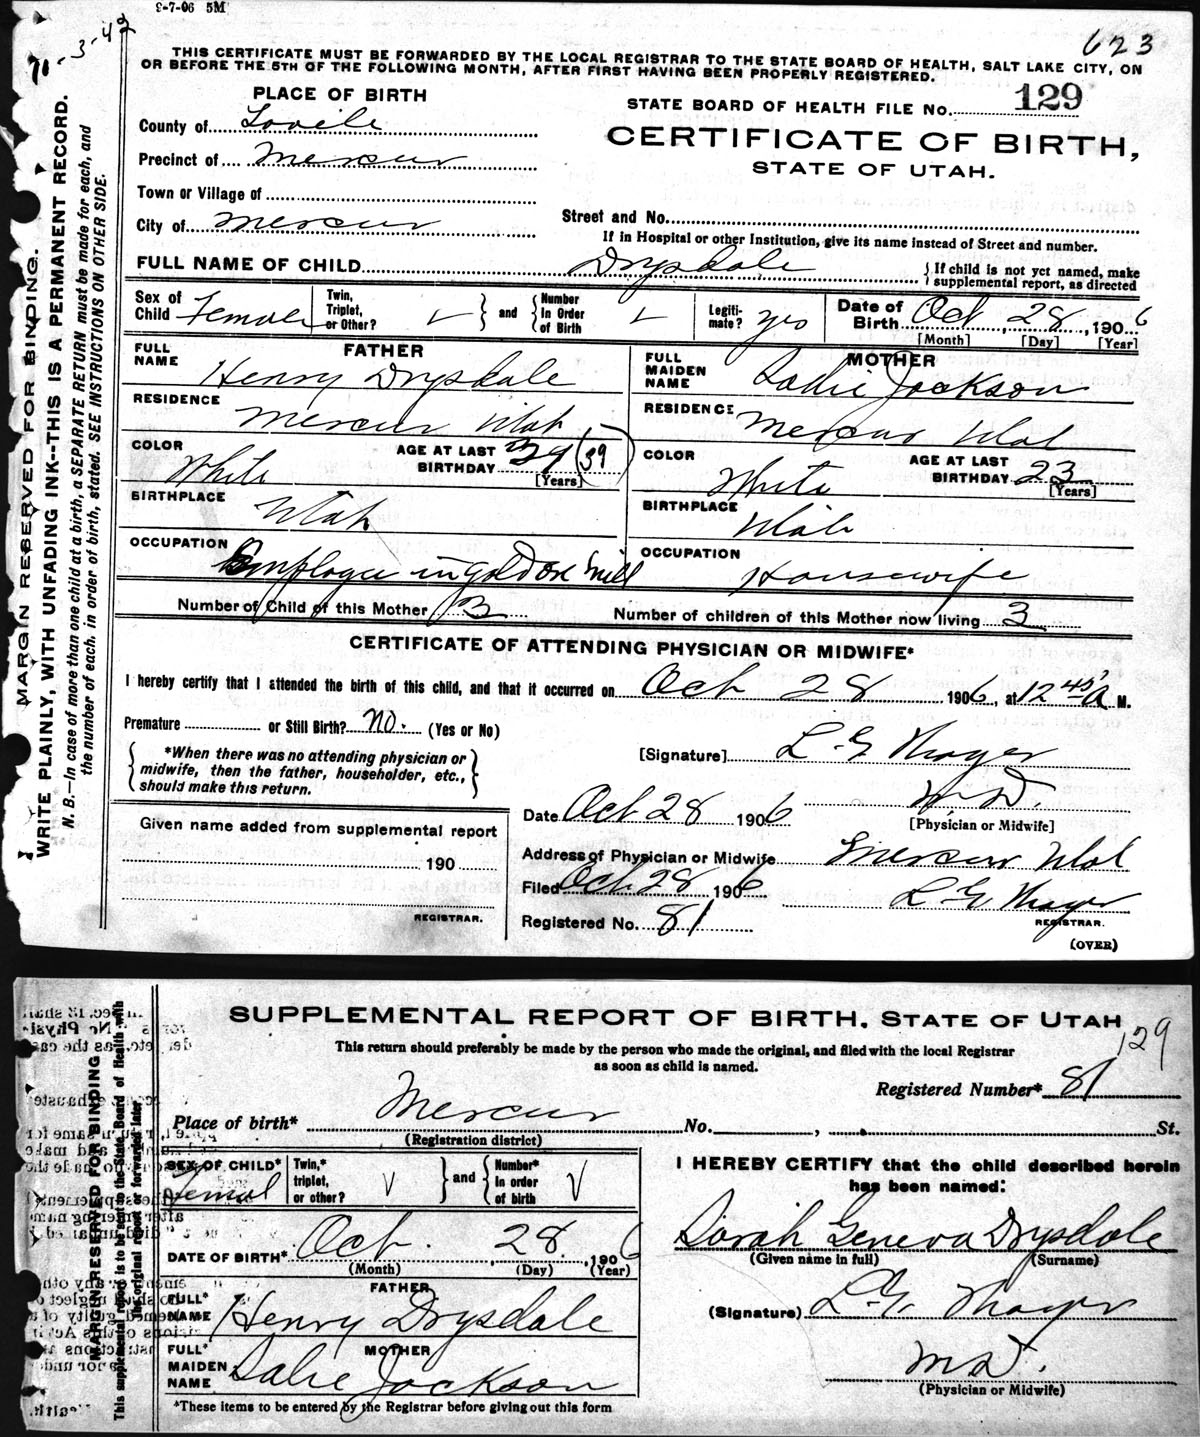 9-7-06 5M
71-3-42
623
THIS CERTIFICATE MUST BE FORWARDED BY THE LOCAL REGISTRAR TO THE STATE BOARD OF HEALTH, SALT LAKE CITY, ON
OR BEFORE THE 5TH OF THE FOLLOWING MONTH, AFTER FIRST HAVING BEEN PROPERLY REGISTERED.
PLACE OF BIRTH
STATE BOARD OF HEALTH FILE No. 129
County of Tooile
CERTIFICATE OF BIRTH,
Precinct of Mercur
STATE OF UTAH.
Town or Village of
City of Mercur
Street and No.
If in Hospital or other Institution, give its name instead of Street and number.
FULL NAME OF CHILD Drysdale
{ If child is not yet named, make
supplemental report, as directed
Sex of Child Female
Twin, Triplet, or Other? and Number In Order of Birth
Legitimate? yes
Date of Birth Oct, 28, 1906
[Month] [Day] [Year]
FATHER
FULL NAME Henry Drysdale
MOTHER
FULL MAIDEN NAME Sadie Jackson
RESIDENCE Mercur Utah
RESIDENCE Mercur Utah
COLOR White
AGE AT LAST BIRTHDAY 39 (39)
[Years]
COLOR White
AGE AT LAST BIRTHDAY 23
[Years]
BIRTHPLACE Utah
BIRTHPLACE Utah
OCCUPATION Employee in gold ore mill
OCCUPATION Housewife
Number of Child of this Mother 3
Number of children of this Mother now living 3
CERTIFICATE OF ATTENDING PHYSICIAN OR MIDWIFE*
I hereby certify that I attended the birth of this child, and that it occurred on Oct 28 1906, at 12 45 A M.
Premature or Still Birth? no. (Yes or No)
*When there was no attending physician or
midwife, then the father, householder, etc.,
should make this return.
[Signature] L. G Thayer
M D.
[Physician or Midwife]
Date Oct 28 1906
Given name added from supplemental report
190
REGISTRAR.
Address of Physician or Midwife Mercur Utah
Filed Oct 28 1906
L G Thayer
REGISTRAR.
Registered No. 81
(OVER)
MARGIN RESERVED FOR BINDING.
WRITE PLAINLY, WITH UNFADING INK--THIS IS A PERMANENT RECORD.
N. B.—In case of more than one child at a birth, a SEPARATE RETURN must be made for each, and
the number of each, in order of birth, stated. SEE INSTRUCTIONS ON OTHER SIDE.
SUPPLEMENTAL REPORT OF BIRTH, STATE OF UTAH
129
This return should preferably be made by the person who made the original, and filed with the local Registrar
as soon as child is named.
Registered Number* 81
Place of birth* Mercur No. , St.
(Registration district)
SEX OF CHILD* Femal
Twin,* triplet, or other? and Number* In order of birth
I HEREBY CERTIFY that the child described herein
has been named:
DATE OF BIRTH* Oct. 28, 1906
(Month) (Day) (Year)
Sarah Geneva Drysdale
(Given name in full) (Surname)
FATHER
FULL* NAME Henry Drysdale
(Signature) L G. Thayer
MOTHER
FULL* MAIDEN NAME Salie Jackson
M D.
(Physician or Midwife)
*These items to be entered by the Registrar before giving out this form
MARGIN RESERVED FOR BINDING
This supplemental report is to be sent to the State Board of Health with
the original report or forwarded later